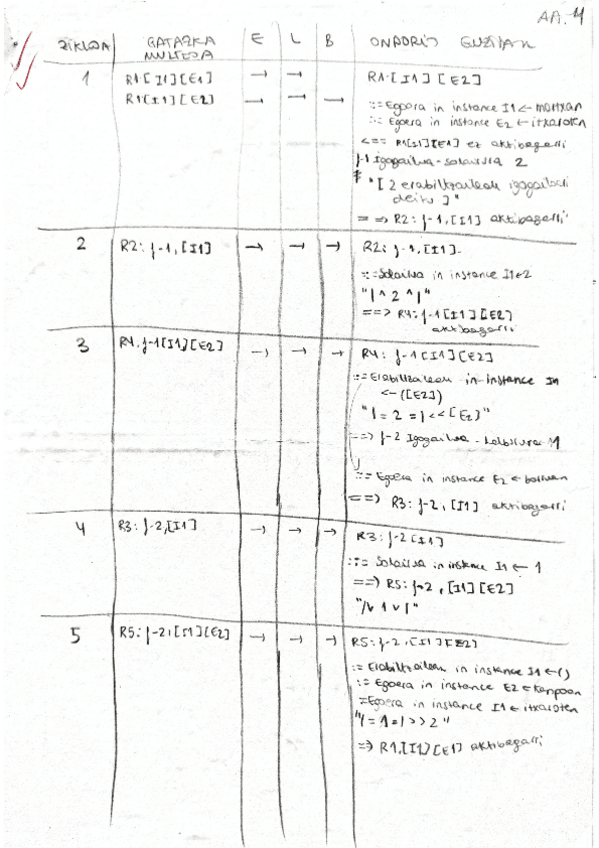 AA.4
ZIKLOA GATAZKA MULTZOA E L B ONDORIO GUZTIAK
1 R1.[I1][E1] → → R1.[I1][E2]
R1.[I1][E2] → → →
::= Egoera in instance I1 ← martxan
::= Egoera in instance E2 ← itxaroten
<== R1[I1][E1] ez aktibagarri
f-1 Igogailua-solairua 2
"[2 erabiltzaileak igogailuari deitu]"
==> R2: f-1,[I1] aktibagarri
2 R2: f-1,[I1] → → → R2: f-1,[I1].
::= Solairua in instance I1←2
"| ^ 2 ^ |"
==> R4: f-1[I1][E2]
aktibagarri
3 R4. f-1[I1][E2] → → → R4: f-1[I1][E2]
::= Erabiltzaileak in instance I1
<-([E2])
"| = 2 = | << [E2]"
==> f-2 Igogailua-helburua 1
::= Egoera in instance E2 ← barruan
==> R3: f-2,[I1] aktibagarri
4 R3: f-2,[I1] → → → R3: f-2[I1]
::= Solairua in instance I1 ← 1
==> R5: f-2,[I1][E2]
"|v 1 v|"
5 R5: f-2,[I1][E2] → → → R5: f-2,[I1][E2]
::= Erabiltzaileak in instance I1←()
::= Egoera in instance E2 ← kanpoan
:=Egoera in instance I1 ← itxaroten
"| = 1 = | >> 2"
=> R1.[I1][E1] aktibagarri